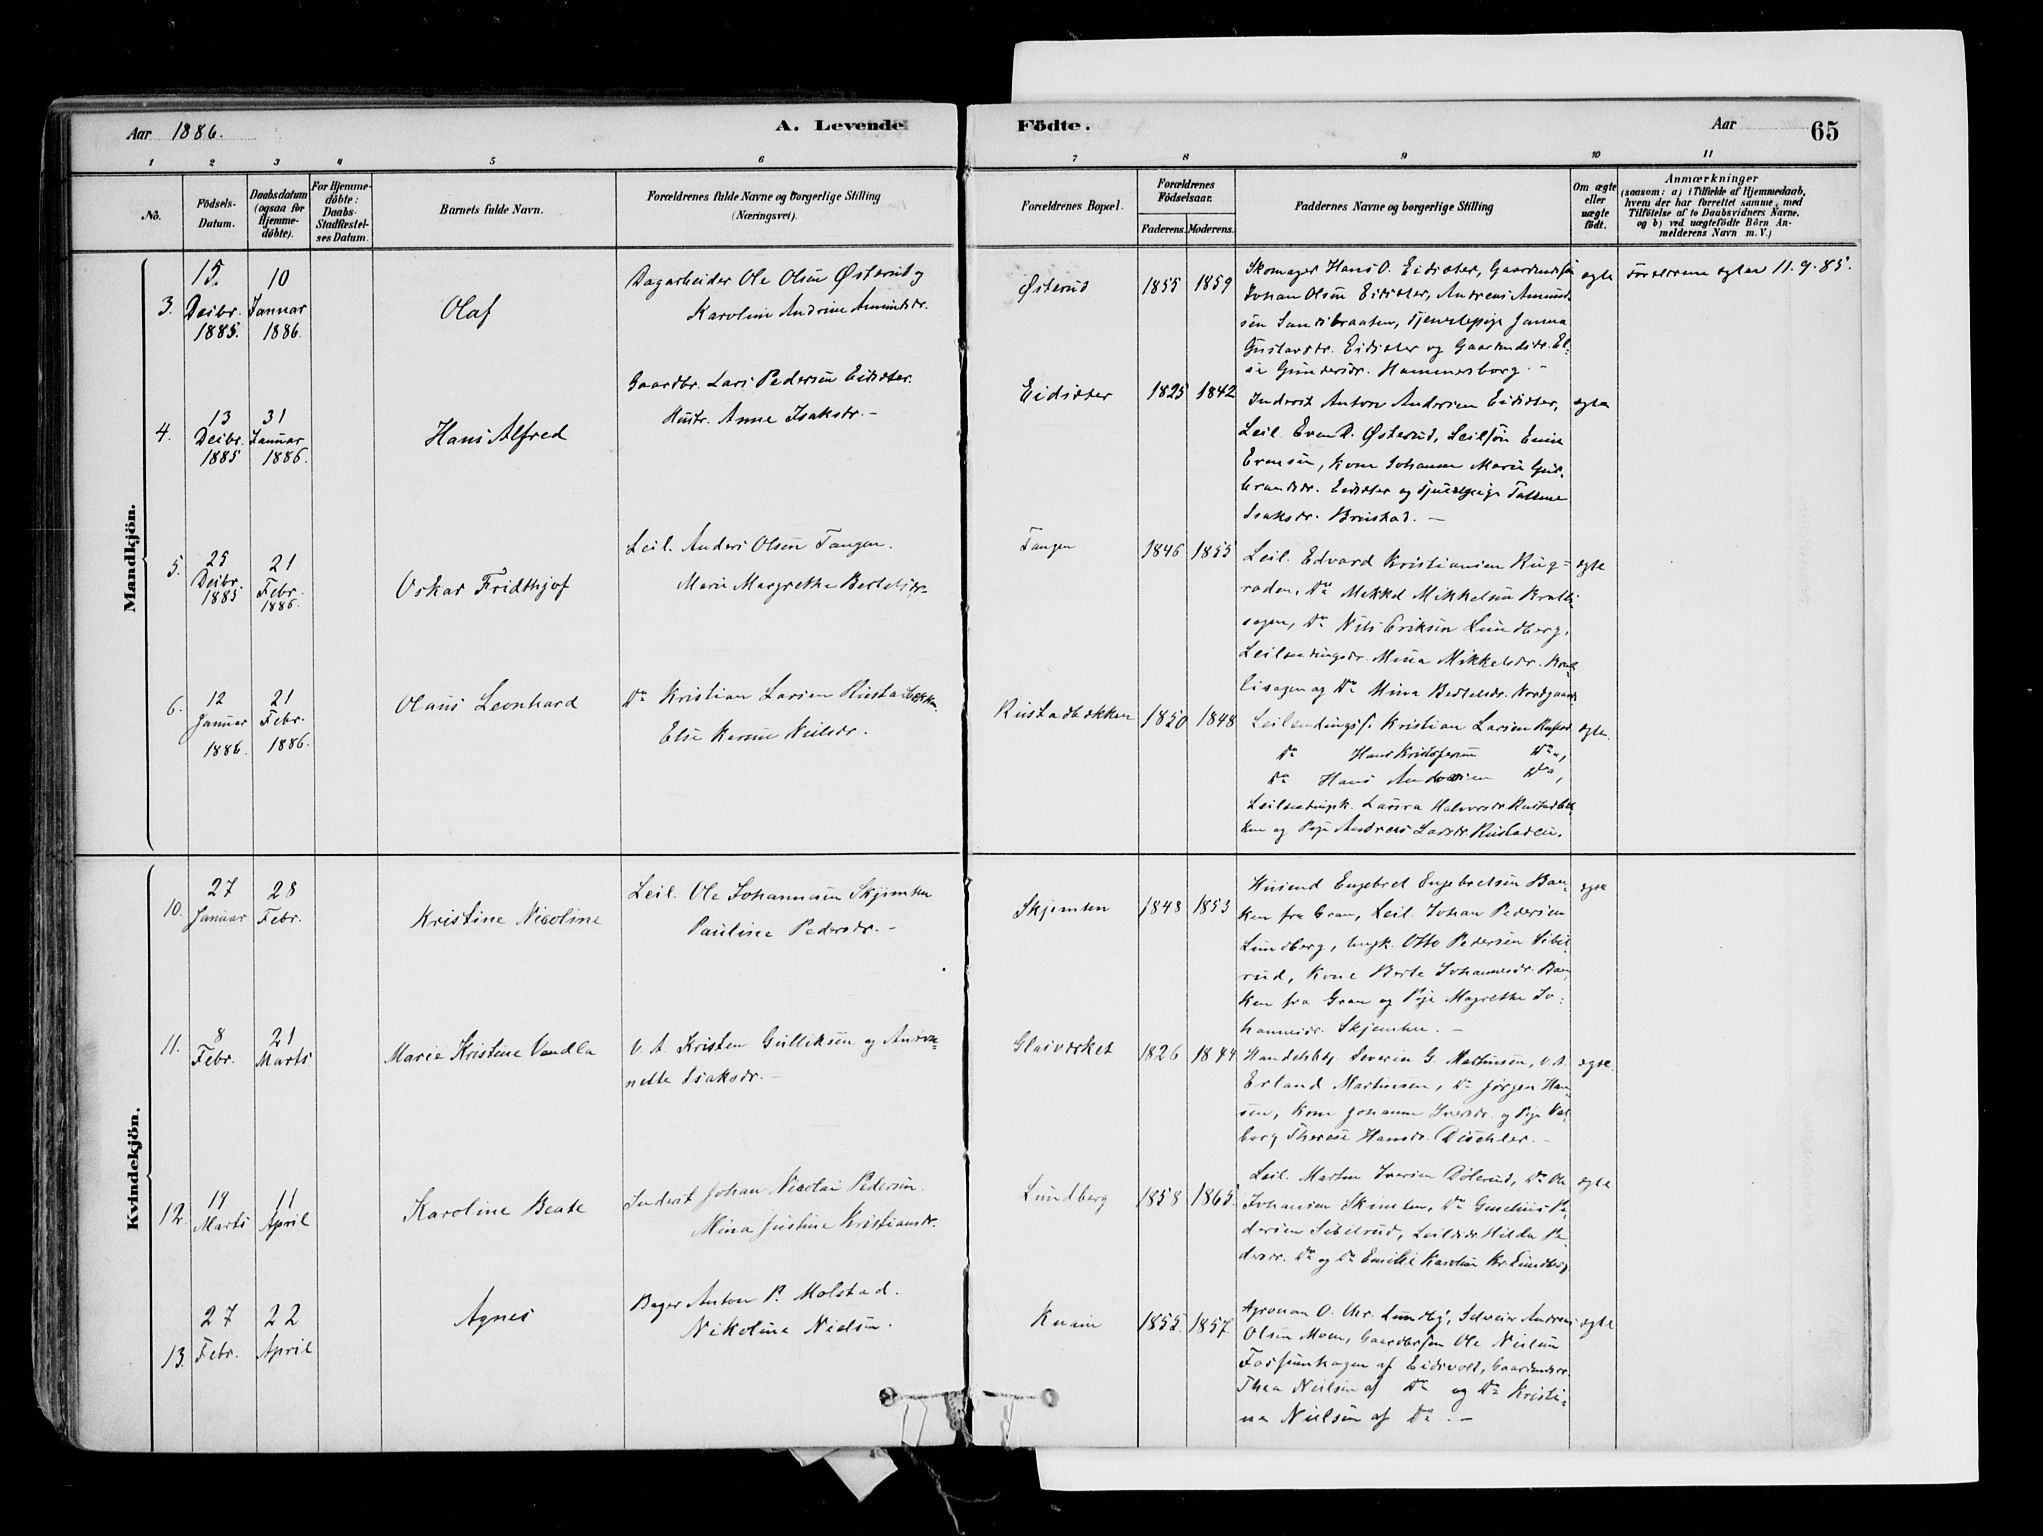 Aar 1886. A. Levende Födte. Aar 65
1 2 3 4 5 6 7 8 9 10 11
No.
Födsels-Datum.
Daabsdatum (ogsaa for Hjemme-döbte).
For Hjemme-döbte: Daabs-Stadfæstel-ses Datum.
Barnets fulde Navn.
Forældrenes fulde Navne og borgerlige Stilling
(Næringsvei).
Forældrenes Bopæl.
Forældrenes Födselsaar.
Faderens. Moderens.
Faddernes Navne og borgerlige Stilling
Om ægte eller uægte födt.
Anmærkninger
(saasom: a) i Tilfælde af Hjemmedaab,
hvem der har forrettet samme, med
Tilföielse af to Daabsvidners Navne,
og b) ved uægtefödte Börn An-
melderens Navn m. V.)
Mandkjön.
3. 15. Decbr. 1885. 10 Januar 1886. Olaf
Dagarbeider Ole Olsen Østerud og
Karoline Andrine Amundsdr.
Østerud 1855 1859
Skomager Hans O. Eidsæter, Gaardmdsøn
Johan Olsen Eidsæter, Andreas Amund-
sen Sandsbraaten, Tjenestepige Janna
Gustavsdr. Eidsæter og Gaardmdsdr. El-
se Gundersdr. Hammersborg. -
egte Forældrene egtev. 11.9.85.
4. 13 Decbr. 1885 31 Januar 1886. Hans Alfred
Gaardbr. Lars Pedersen Eidsæter.
Hustr. Anne Isaksdr. -
Eidsæter 1825 1842
Inderst Anton Andersen Eidsæter,
Leil. Even P. Østerud, Leilsøn Emil
Evensen, Kone Johanne Marie Gul-
brandsdr. Eidsæter og Tjenestepige
Isaksdr. -
egte
5. 25 Decbr. 1885 21 Febr. 1886. Oskar Fridthjof
Leil. Anders Olsen Tangen.
Marie Margrethe Bertelsdr.
Tangen 1846 1855
Leil. Edvard Kristiansen Rug-
raden, Do Mikkel Mikkelsen Kralli-
sagen, Do Nils Eriksen Lundberg,
Leilændingsdr. Mina Mikkelsdr. Kral-
lisagen og Do Mina Bertelsdr. Nordgaard.
egte
6. 12 Januar 1886 21 Febr. 1886. Olaus Leonhard
Do Kristian Larsen Rustadbækken
Else Karine Nielsdr.
Rustadbækken 1850 1848
Leilændingsf. Kristian Larsen
Do Hans Kristofersen Do,
Do Hans Andersen Do,
Leilændingk. Laura Halvorsdr. Rustadbæk-
ken og Pige Andrea Larsdr. Rustaden.
egte.
Kvindekjön.
10. 27 Januar 28 Febr. Kristine Nicoline
Leil. Ole Johannesen Skjemten
Pauline Pedersdr. -
Skjemten 1848 1853
Husmd Engebret Engebretsen Bak-
ken fra Gran, Leil. Johan Pedersen
Lundberg, Ungk. Otto Pedersen Sibil-
rud, Kone Berte Johannesdr. Bak-
ken fra Gran og Pige Magrethe Jo-
hannesdr. Skjemten. -
egte
11. 8 Febr. 21 Marts Marie Kristine Vendla
V. A. Kristen Gulliksen og Antoi-
nette Isaksdr. -
Glasværket 1826 1844
Handelsbtj. Severin G. Martinsen, V.A.
Erland Martinsen, Do Jørgen Han-
sen, Kone Johanne Iversdr. og Pige Val-
borg Therese Hansdr. Dischler. -
egte.
12. 19 Marts 11 April Karoline Beate
Inderst Johan Nicolai Pedersen.
Mina Justine Kristiansdr.
Lundberg 1858 1865.
Leil. Martin Iversen Dølerud, Do Ole
Johansen Skjemten, Do Gunelius Pe-
dersen Sibilrud, Leilsdr. Hilda Pe-
dersdr. Do og Do Emilie Karoline Kr. Lundberg.
egte
13. 27 Febr. 22 April Agnes
Bager Anton P. Molstad.
Nikoline Nielsen.
Knain 1852. 1857.
Agronom O. Chr. Lundbg, Selveier Andreas
Olsen Moen, Gaardbrsøn Ole Nielsen
Fosfumhagen af Eidsvold, Gaardmdsdr.
Thea Nielsen af Do og Do Kristi-
na Nielsen af Do. -
egte